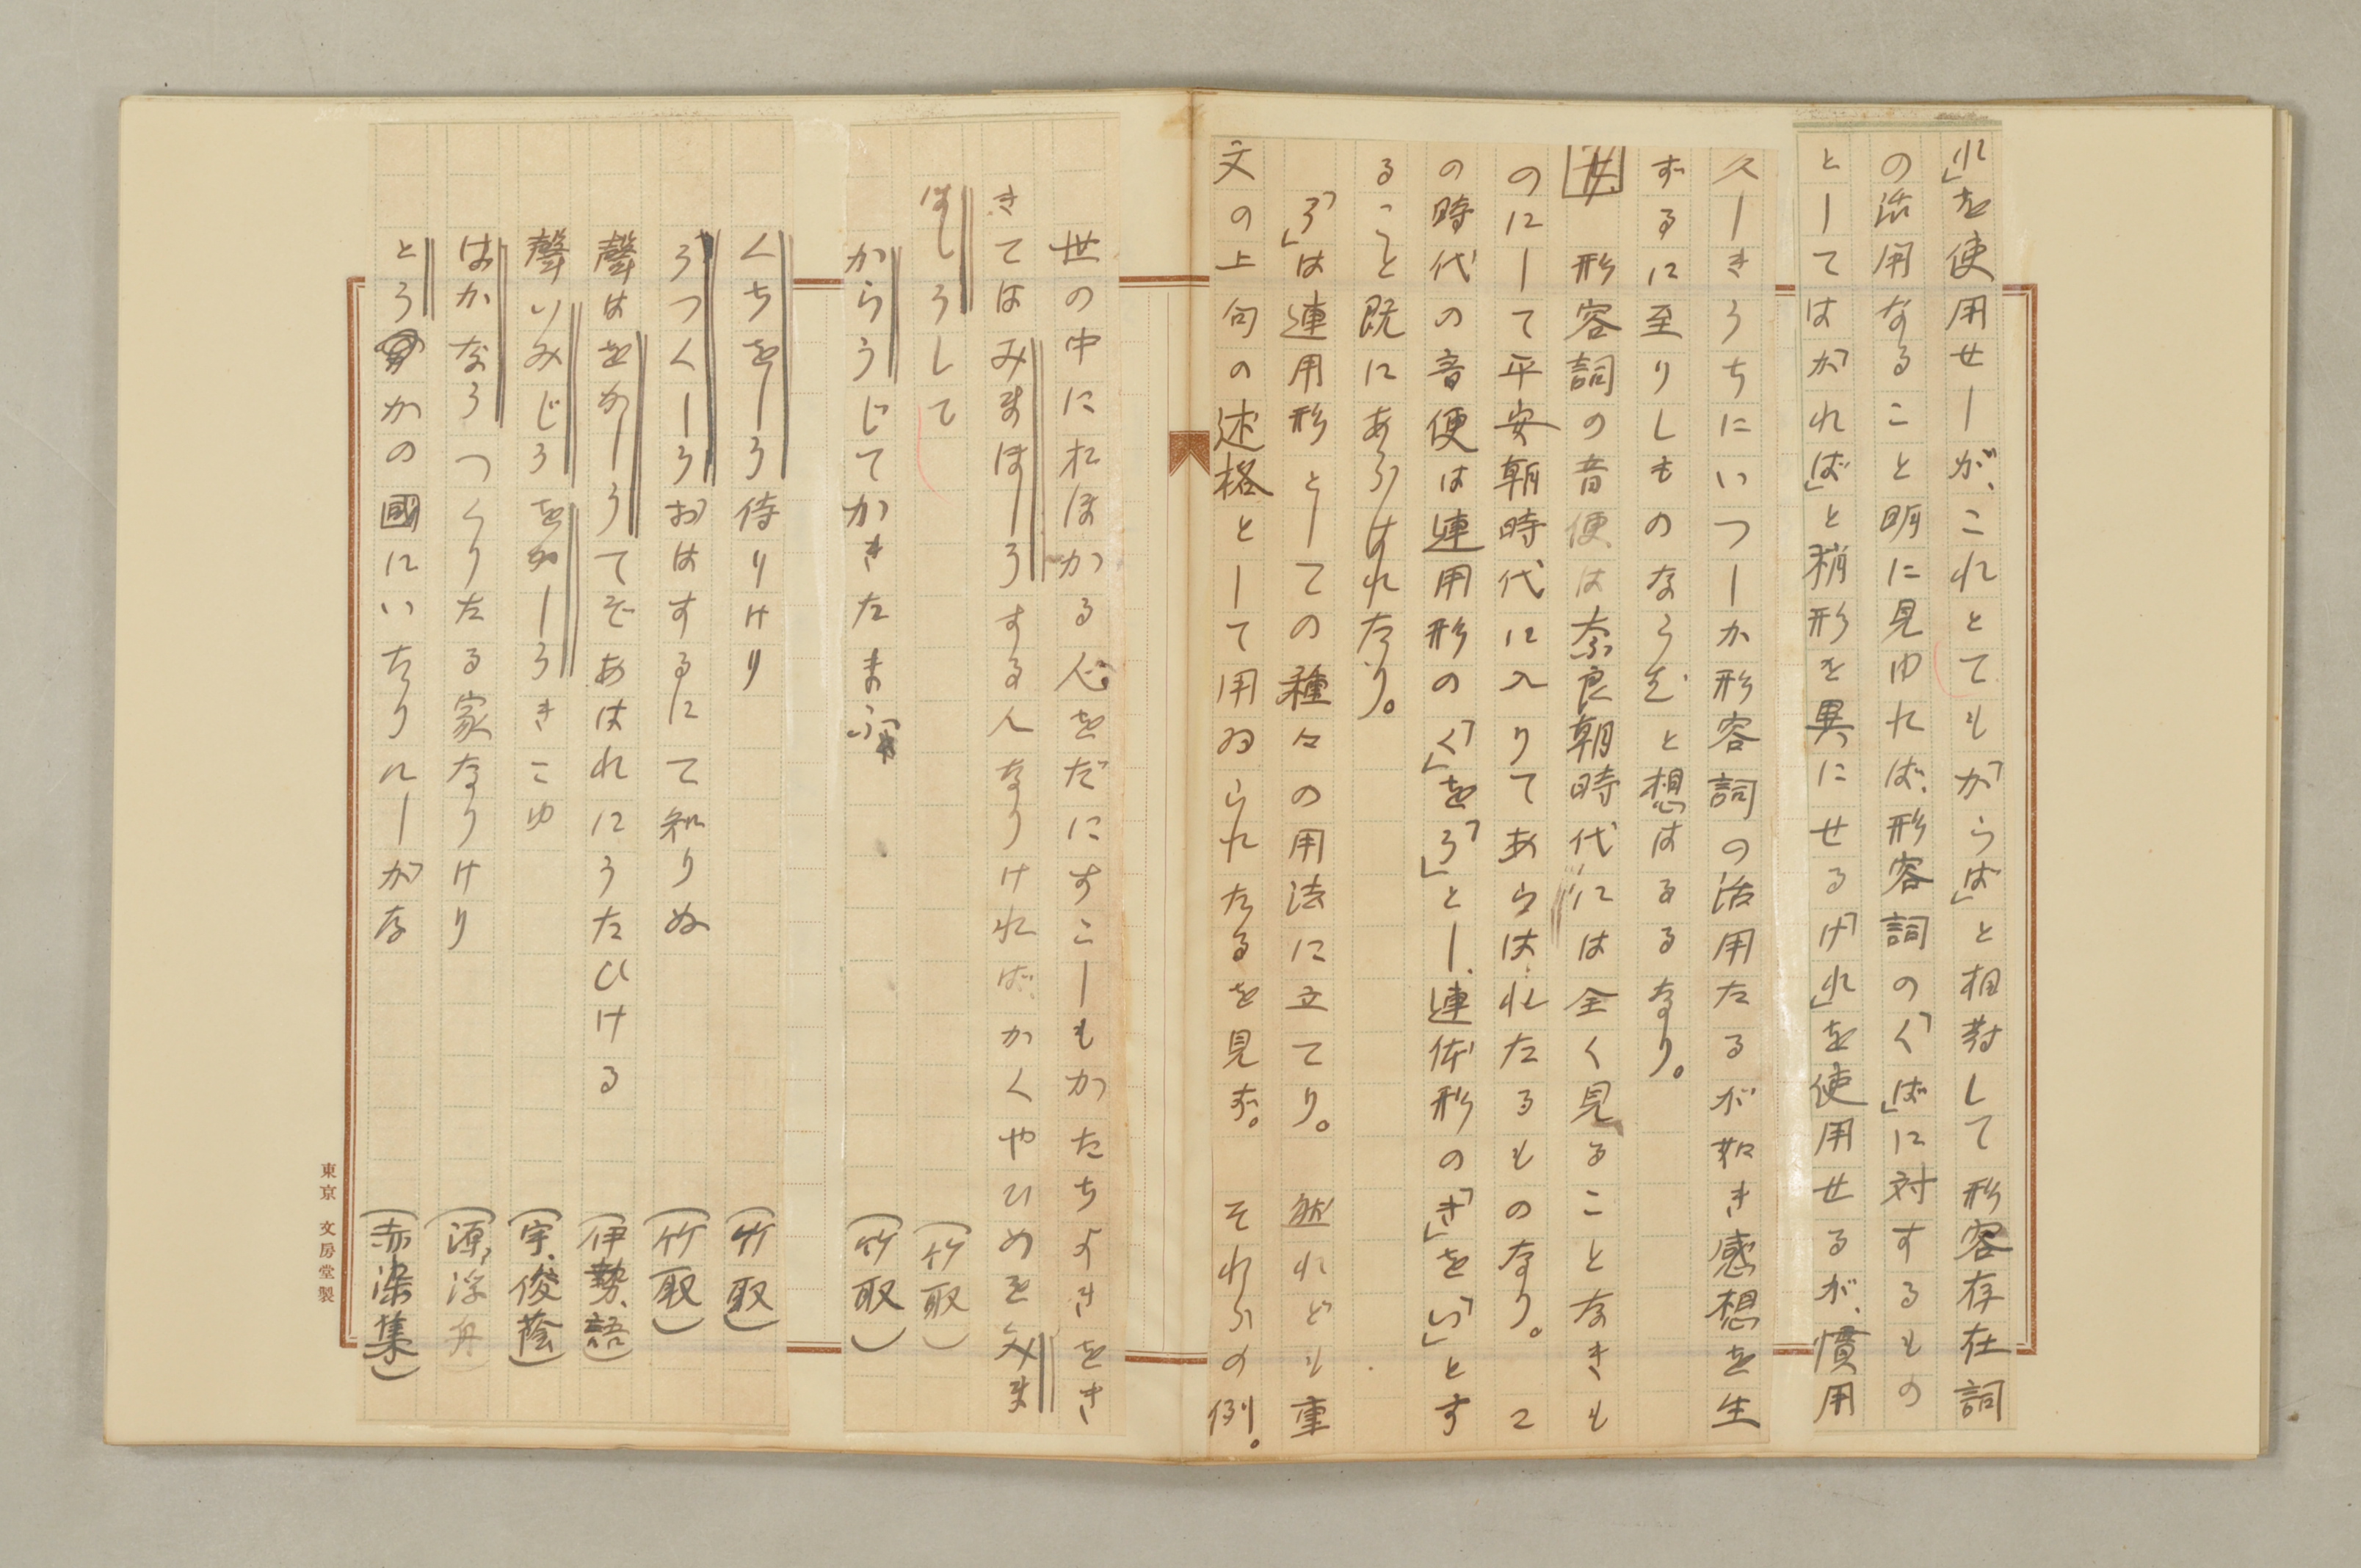 れ」を使用せしが、これとても「からば」と相対して形容存在詞
の活用なること明に見ゆれば、形容詞の「くば」に対するもの
としてはが「れば」と稍形を異にせる「けれ」を使用せるが、慣用
久しきうちにいつしか形容詞の活用たるが如き感想を生
ずるに至りしものならむと想はるるなり。
形容詞の音便は奈良朝時代には全く見ることなきも
のにして平安朝時代に入りてあらはれたるものなり。こ
の時代の音便は連用形の「く」を「う」とし、連体形の「き」を「い」とす
ること既にあらはれたり。
「う」は連用形としての種々の用法に立てり。然れども重
文の上句の述格として用ゐられたるを見ず。それらの例。
世の中におほかる人をだにすこしもかたちよきをき
きてはみまほしうする人なりければ、かくやひめを みま
ほしうして（竹取）
からうじてかきたまふ（竹取）
くちをしう侍りけり（竹取）
うつくしうおはするにて知りぬ（竹取）
聲はをかしうてぞあはれにうたひける（伊勢、語）
聲いみじうをかしうきこゆ（宇、俊蔭）
はかなうつくりたる家なりけり（源、浮舟）
とうかの國にいたりにしがな（赤染集）
東京 文房堂製